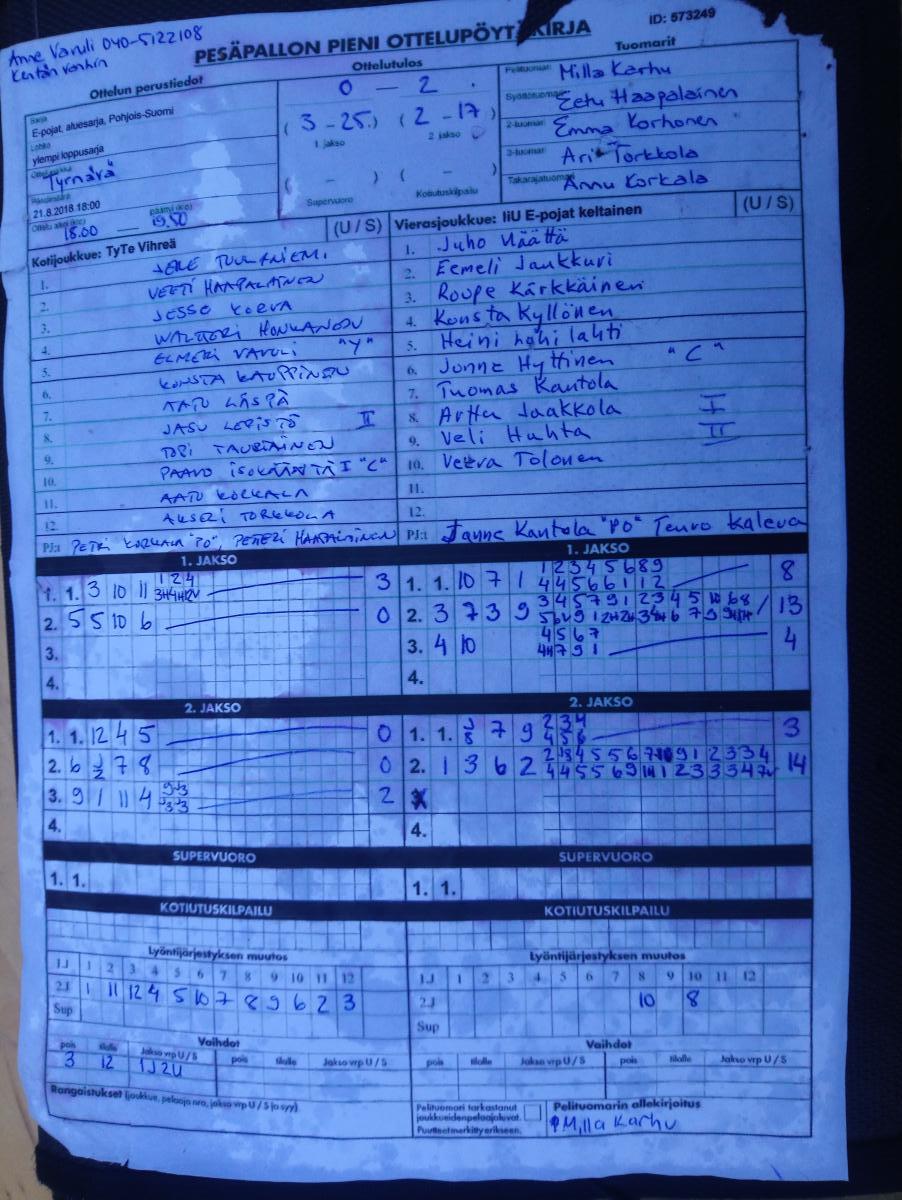 Anne Vavuli 040-5122108
Kentän vanhin
PESÄPALLON PIENI OTTELUPÖYTÄKIRJA
ID: 573249
Ottelun perustiedot
Sarja
E-pojat, aluesarja, Pohjois-Suomi
Lohko
ylempi loppusarja
Ottelupaikka
Tyrnävä
21.8.2018 18:00
Ottelu alkoi (klo)
18.00 — 19.50
Ottelutulos
0 — 2
( 3 - 25 ) ( 2 - 17 )
1. jakso 2. jakso
( - ) ( - )
Supervuoro Kotiutuskilpailu
Tuomarit
Pelituomari Milla Karhu
Syöttötuomari Eetu Haapalainen
2-tuomari Emma Korhonen
3-tuomari Ari Torkkola
Takarajatuomari Annu Korkala
Kotijoukkue: TyTe Vihreä (U / S)
1.
2. VEETI HAAPALAINEN
3. JESSE KORVA
4. WALTTERI HONKANEN
5. ELMERI VAVULI "Y"
6. KONSTA KAUPPINEN
7. AATU LÄSPÄ
8. JASU LEPISTÖ II
9. TOPI TAURIAINEN
10. PAAVO ISOKÄÄNTÄ I "C"
11. AATU KORKALA
12. AKSELI TORKKOLA
PJ:t PETRI KORKALA "PO", PETTERI HAAPALAINEN
Vierasjoukkue: IiU E-pojat keltainen (U / S)
1. Juho Määttä
2. Eemeli Jaukkuri
3. Roope Kärkkäinen
4. Konsta Kyllönen
5. Heini Lahti
6. Jonne Hyttinen "C"
7. Tuomas Kantola
8. Arttu Jaakkola I
9. Veli Huhta II
10. Veera Tolonen
11.
12.
PJ:t Janne Kantola "PO" Teuvo Kaleva
1. JAKSO
1. 1. 3 10 11 1 2 4 3
2. 5 5 10 6 0
3.
4.
1. JAKSO
1. 1. 10 7 1 1 2 3 4 5 6 8 9 8
4 4 5 6 6 1 1 2
2. 3 7 3 9 3 4 5 7 9 1 2 3 4 5 10 6 8 13
3. 4 10 4 5 6 7 4
4H 7 9 1
4.
2. JAKSO
1. 1. 12 4 5 0
2. 6 J2 7 8 0
3. 9 1 11 4 2
4.
2. JAKSO
1. 1. J8 7 9 2 3 4 3
4 5 6
2. 1 3 6 2 14
4.
SUPERVUORO
1. 1.
SUPERVUORO
1. 1.
KOTIUTUSKILPAILU
KOTIUTUSKILPAILU
Lyöntijärjestyksen muutos
1J 1 2 3 4 5 6 7 8 9 10 11 12
2J 1 11 12 4 5 10 7 8 9 6 2 3
Sup
Lyöntijärjestyksen muutos
1J 1 2 3 4 5 6 7 8 9 10 11 12
2J 10 8
Sup
Vaihdot
pois tilalle Jakso vrp U / S pois tilalle Jakso vrp U / S
3 12 1J2U
Vaihdot
pois tilalle Jakso vrp U / S pois tilalle Jakso vrp U / S
Rangaistukset (joukkue, pelaaja nro, jakso vrp U / S ja syy)
Pelituomari tarkastanut
joukkueiden pelaajaluvat.
Puutteet merkitty erikseen.
Pelituomarin allekirjoitus
Milla Karhu